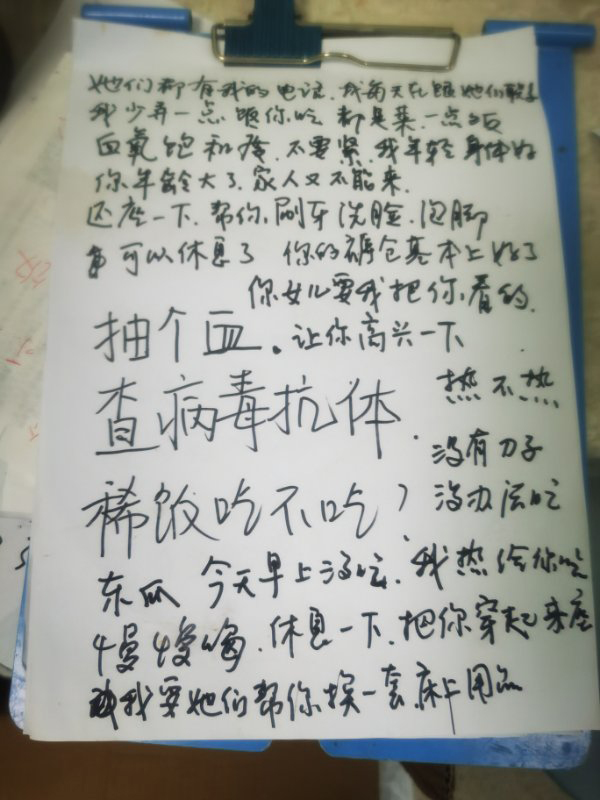 她们都有我的电话.我每天在跟她们联系
我少弄一点饭你吃 都是菜.一点饭
血氧饱和度.不要紧.我年轻身体好
你年龄大了.家人又不能来.
还座一下.帮你.刷牙洗脸.泡脚
可以休息了 你的褥仓基本上好了
你女儿要我把你.看的.
抽个血.让你高兴一下
查病毒抗体 热不热
没有刀子
稀饭吃不吃? 没办法吃
东瓜 今天早上没吃.我热给你吃
慢慢喝.休息一下.把你穿起来座
我要她们帮你.换一套.床上用品